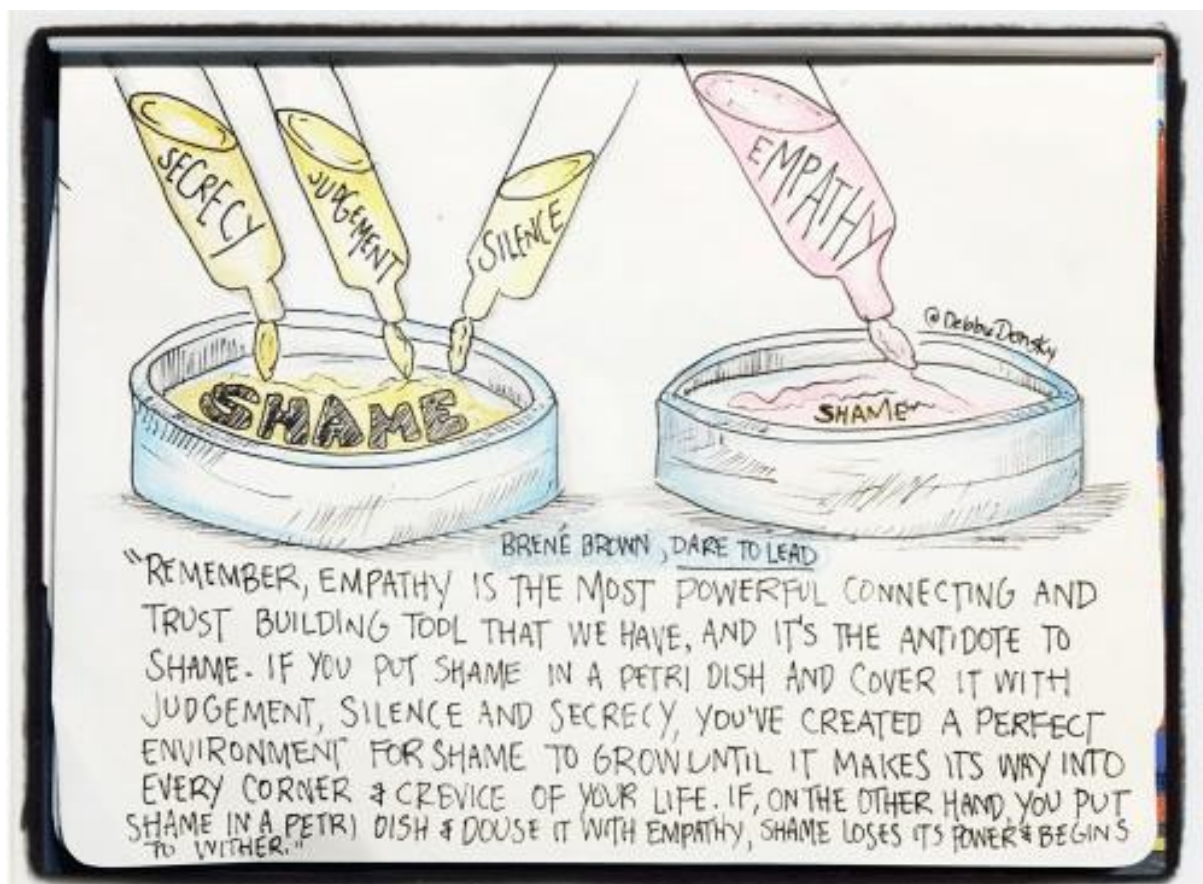 SECRECY
JUDGEMENT
SILENCE
EMPATHY
@DebbieDonsky
SHAME
SHAME
BRENÉ BROWN, DARE TO LEAD
"REMEMBER, EMPATHY IS THE MOST POWERFUL CONNECTING AND
TRUST BUILDING TOOL THAT WE HAVE, AND IT'S THE ANTIDOTE TO
SHAME. IF YOU PUT SHAME IN A PETRI DISH AND COVER IT WITH
JUDGEMENT, SILENCE AND SECRECY, YOU'VE CREATED A PERFECT
ENVIRONMENT FOR SHAME TO GROW UNTIL IT MAKES ITS WAY INTO
EVERY CORNER & CREVICE OF YOUR LIFE. IF, ON THE OTHER HAND, YOU PUT
SHAME IN A PETRI DISH & DOUSE IT WITH EMPATHY, SHAME LOSES ITS POWER & BEGINS
TO WITHER."